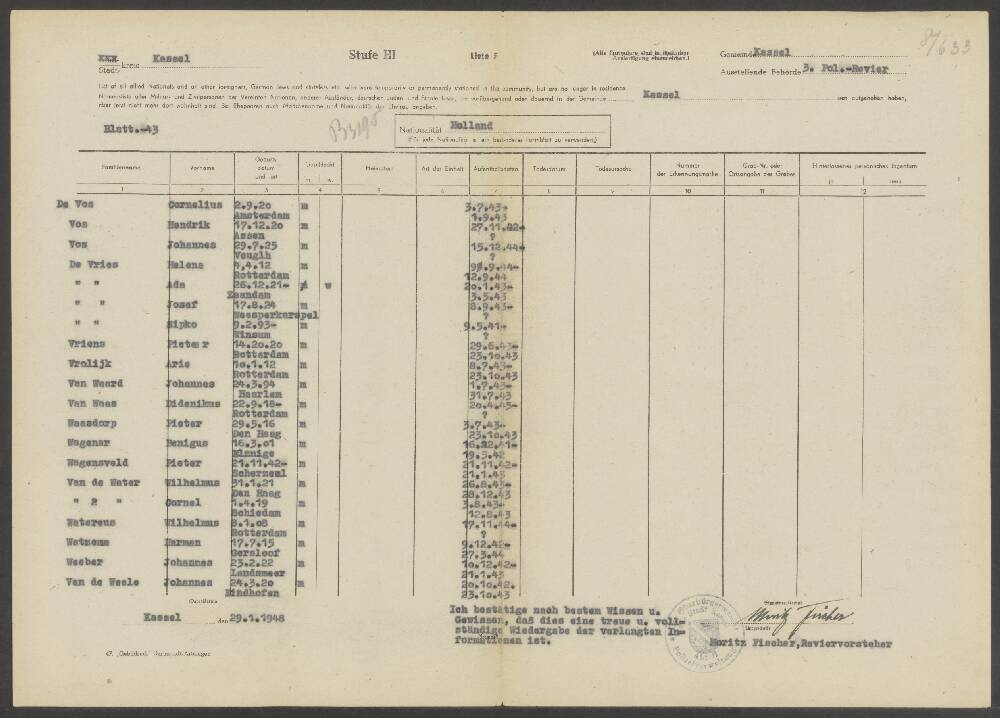 84/633
xxx Stadt- kreis Kassel Stufe III Liste F Gemeinde Kassel
Ausstellende Behörde 3. Pol.-Revier
List of all allied Nationals and all other foreigners, German Jews and stateless etc. who were temporarily or permanently stationed in the community, but are no longer in residence.
Kassel
Blatt.-43
Nationalität Holland
(Für jede Nationalität ist ein besonderes Formblatt zu verwenden.)
Familienname Vorname Geburtsdatum und -ort Geschlecht m. w. Heimatort Art der Einheit Aufenthaltsdaten Todesdatum Todesursache Nummer der Erkennungsmarke Grab-Nr. oder Ortsangabe des Grabes Hinterlassenes persönliches Eigentum
1 2 3 4 5 6 7 8 9 10 11 12
De Vos Cornelius 2.9.20 m 3.7.43-
Amsterdam 1.9.43
Vos Hendrik 17.12.20 m 27.11.42-
Assen ?
Vos Johannes 29.7.25 m 15.12.44-
Veuglh ?
De Vries Helena 4.4.12 m 9.9.44-
Rotterdam 12.9.44
" " Ada 26.12.21- w 20.1.43-
Zaandam 3.5.43
" " Josef 17.8.24 m 8.9.43-
Weesperkarspel ?
" " Sipko 9.2.93- m 9.5.41-
Winsum ?
Vriens Pieter 14.20.20 m 29.6.43-
Rotterdam 23.10.43
Vrolijk Arie 10.1.12 m 8.7.43-
Rotterdam 23.10.43
Van Waard Johannes 24.3.94 m 1.7.43-
Haarlem 31.7.43
Van Waas Didenikus 22.9.18- m 20.4.45-
Rotterdam ?
Waasdorp Pieter 29.5.16 m 3.7.43-
Den Haag 23.10.43
Wagenar Benigus 16.3.01 m 16.12.41-
Elnnige 19.5.42
Wagensveld Pieter 21.11.42- m 21.11.42-
Scherzeel 21.1.43
Van de Water Wilhelmus 31.1.21 m 26.8.43-
Den Haag 28.12.43
" 2 " Cornel 1.4.19 m 3.8.43-
Schiedam 12.8.43
Watereus Wilhelmus 8.1.08 m 17.11.44-
Rotterdam ?
Watzema Harman 17.7.15 m 9.12.42-
Gersloof 27.3.44
Weeber Johannes 23.2.22 m 10.12.42-
Landsmeer 21.1.43
Van de Weele Johannes 24.3.20 m 20.10.42.
Eindhofen 23.10.43
Kassel den 29.1.1948
Ich bestätige nach bestem Wissen u.
Gewissen, daß dies eine treue u. voll-
ständige Wiedergabe der verlangten In-
formationen ist.
Moritz Fischer
Moritz Fischer, Reviervorsteher